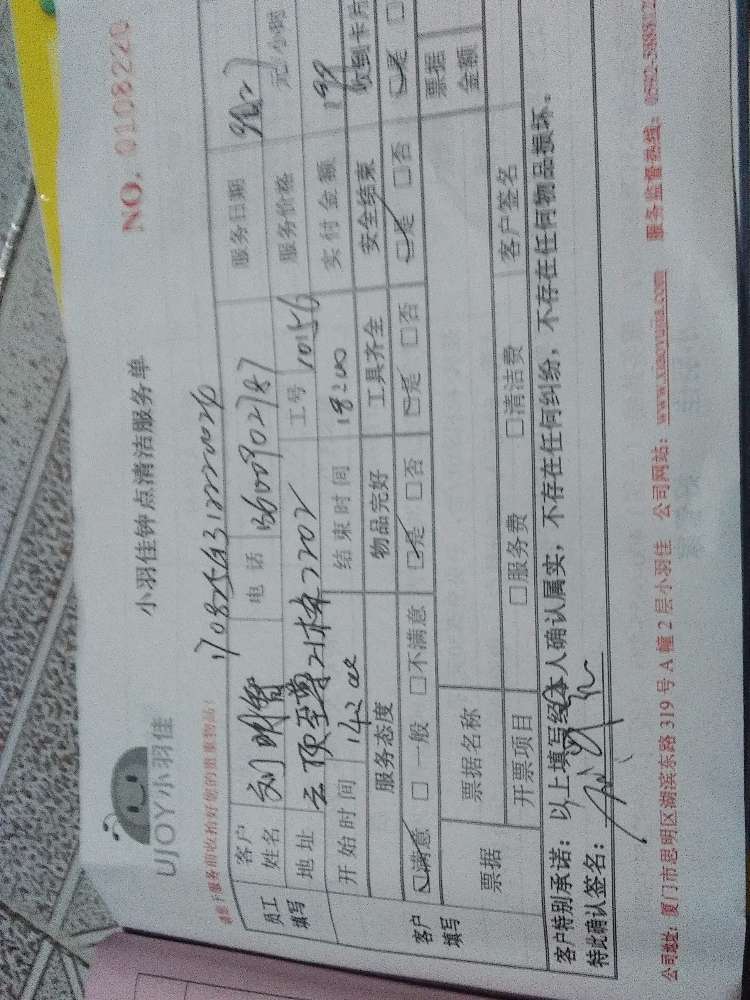 UJOY小羽佳
小羽佳钟点清洁服务单
NO. 0108220
员工填写
客户姓名 刘明智 电话 服务日期 9.27
地址 云顶至尊21栋2202 工号 10156 服务价格 元/小时
开始时间 14:00 结束时间 18:00 实付金额 199
客户填写
服务态度 物品完好 工具齐全 安全结束 收到卡片
☑满意 □一般 □不满意 ☑是 □否 ☑是 □否 ☑是 □否 ☑是 □
票据 票据名称 票据金额
开票项目 □服务费 □清洁费 客户签名
客户特别承诺：以上填写经本人确认属实，不存在任何纠纷，不存在任何物品损坏。
特此确认签名：
公司地址：厦门市思明区湖滨东路 319 号 A 幢 2 层小羽佳 公司网站：www.xiaoyujia.com 服务监督热线：